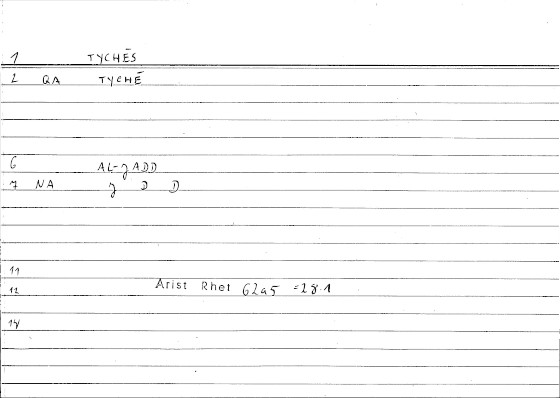 1 TYCHĒS
2 QA TYCHĒ
6 AL-ǦADD
7 NA Ǧ D D
11
12 Arist Rhet 62a5 =28.1
14